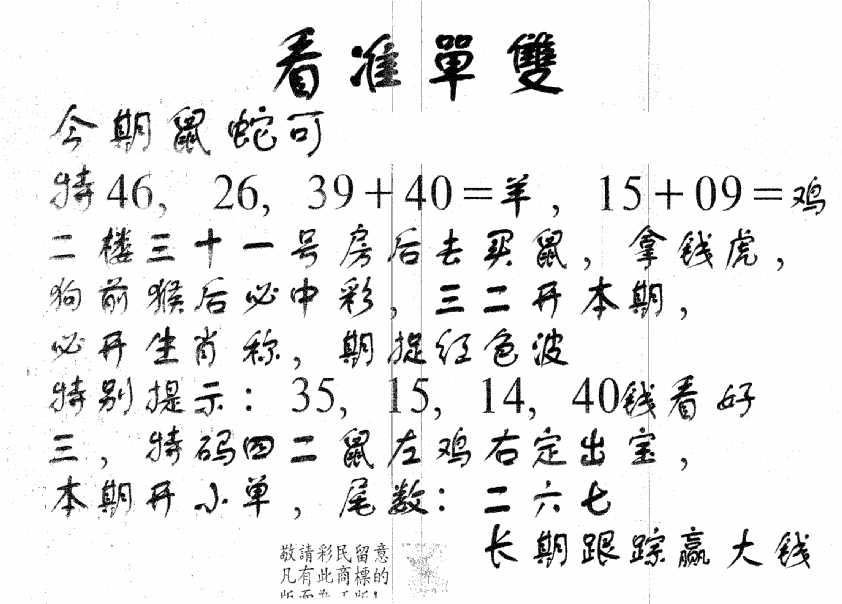 看准單雙
今期鼠蛇可
特46, 26, 39+40=羊, 15+09=鸡
二楼三十一号房后去买鼠, 拿钱虎,
狗前猴后必中彩, 三二开本期,
必开生肖称, 期捉红色波
特别提示: 35, 15, 14, 40钱看好
三, 特码四二鼠左鸡右定出宝,
本期开小单, 尾数: 二六七
长期跟踪赢大钱
敬請彩民留意
凡有此商標的